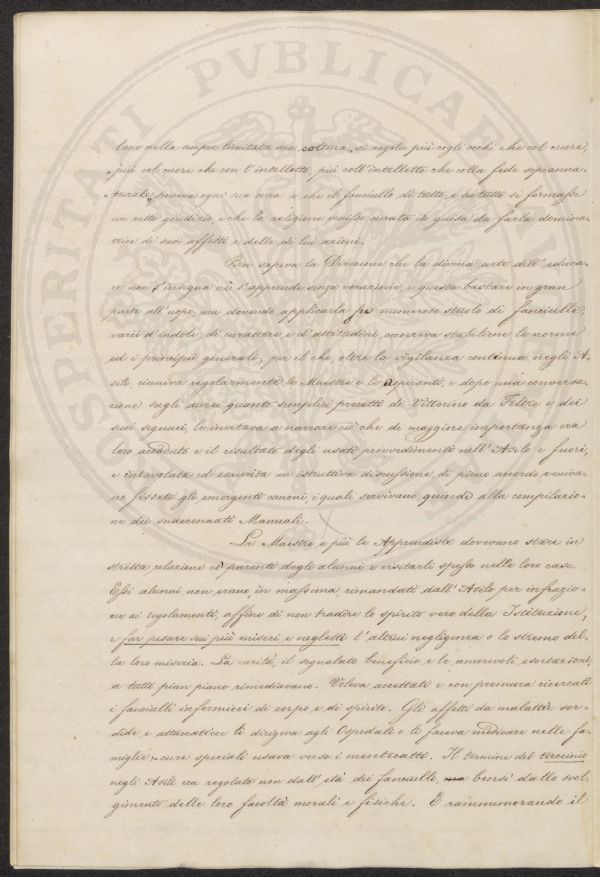 PROSPERITATI PVBLICAE
lano della sempre limitata sua coltura, si regola più cogli occhi che col cuore,
più col cuore che con l'intelletto, più coll'intelletto che colla fede sopranna-
turale, poneva ogni sua cura a che il fanciullo di tutto, e su tutto si formasse
un retto giudizio, e che la religione venisse curata in guisa da farla domina-
trice di suoi affetti e delle di lui azioni.
Ben sapeva la Direzione che la divina arte dell'educa-
re non s'insegna nè s'apprende senza vocazione, e questa bastare in gran
parte all'uopo, ma dovendo applicarla su numeroso stuolo di fanciulli,
varii d'indole, di carattere e d'attitudini, occorreva stabilirne le norme
ed i principii generali; per il che, oltre la vigilanza continua negli A-
sili riuniva regolarmente le Maestre e le Aspiranti, e dopo una conversa-
zione sugli aurei quanto semplici precetti di Vittorino da Feltre e dei
suoi seguaci, le invitava a narrare ciò che di maggiore importanza era
loro accaduto e il risultato degli usati provvedimenti nell'Asilo e fuori,
e intavolata ed esaurita un istruttiva discussione di pieno accordo veniva-
no fissati gli emergenti canoni, i quali servivano quindi alla compilazio-
ne dei suaccennati Manuali.
Le Maestre e più le Apprendiste dovevano stare in
stretta relazione coi parenti degli alunni e visitarli spesso nelle loro case.
Essi alunni non erano, in massima, rimandati dall'Asilo per infrazio-
ne ai regolamenti, affine di non tradire lo spirito vero della Istituzione,
e far pesare sui più miseri e negletti l'altrui negligenza o lo stremo del-
la loro miseria. La carità, il segnalato beneficio e le amorevoli esortazioni,
a tutto pian piano rimediavano. Voleva accettati e con premura ricercati
i fanciulli infermicci di corpo e di spirito. Gli affetti da malattie sor-
dide e attaccaticce li dirigeva agli Ospedali o li faceva medicare nelle fa-
miglie: cure speciali usava verso i mentecatti. Il termine del tirocinio
negli Asili era regolato non dall'età dei fanciulli, bensì dallo svol-
gimento delle loro facoltà morali e fisiche. E rammemorando il